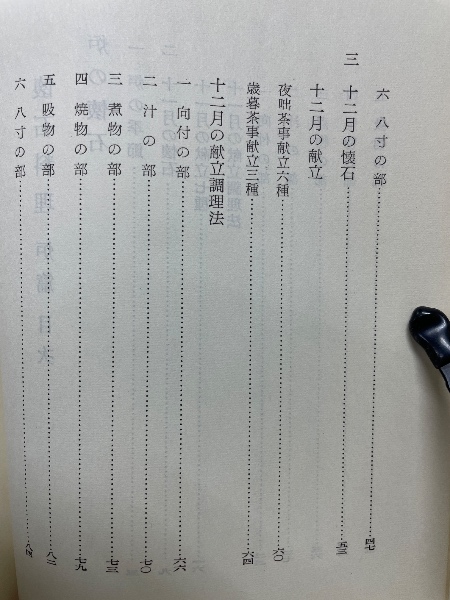 六 八寸の部 四七
三 十二月の懐石 五三
十二月の献立
夜咄茶事献立六種 六〇
歳暮茶事献立三種 六四
十二月の献立調理法
一 向付の部 六六
二 汁の部 七〇
三 煮物の部 七三
四 焼物の部 七九
五 吸物の部 八二
六 八寸の部